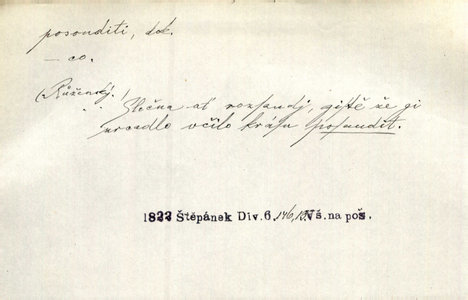 posouditi, dok.
— co.
(Růženský.) Slečna ať rozsaudj, gistě že gi
zrcadlo včilo krásu posaudit.
1822 Štěpánek Div. 6, 146, Vš. na poš.